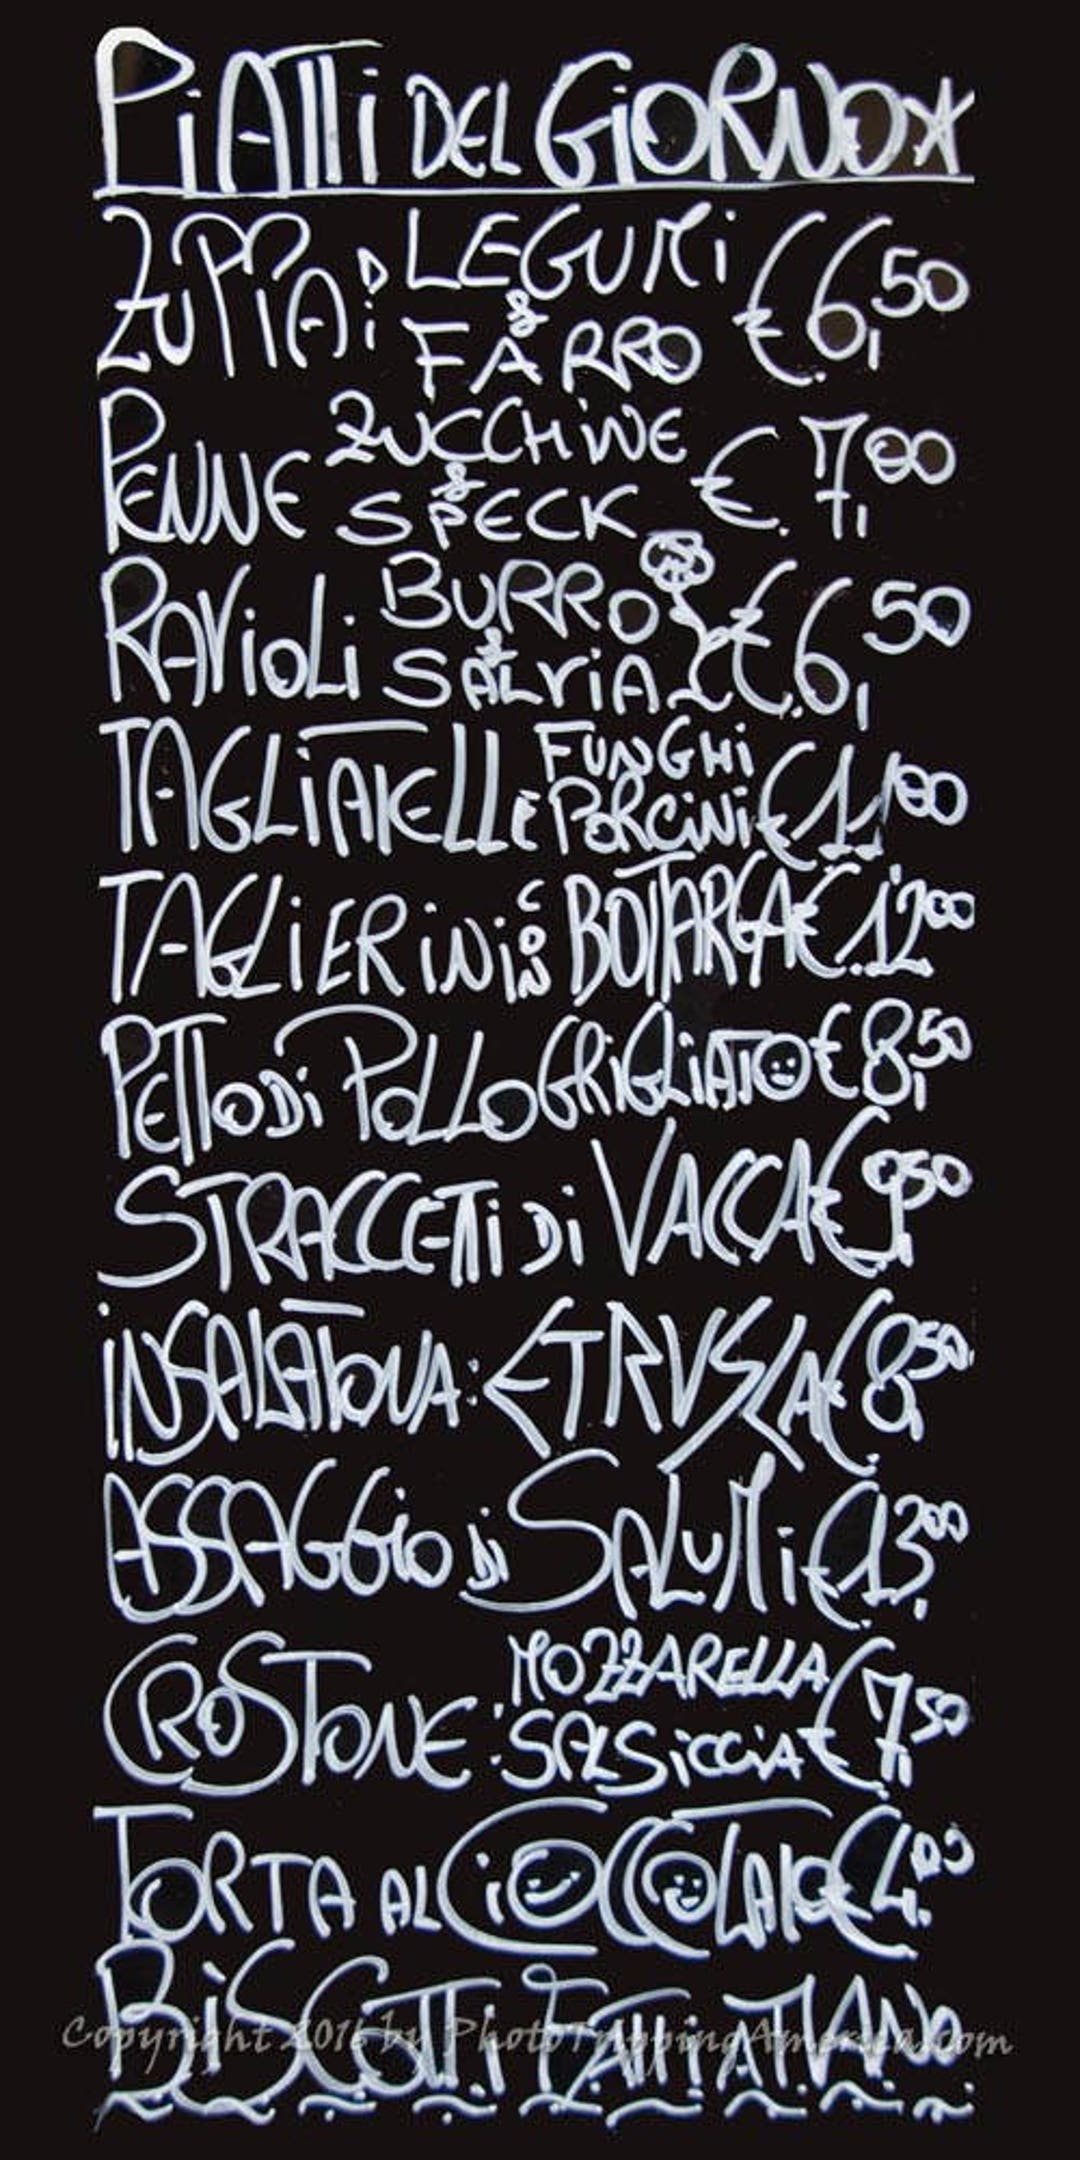 PiATTi DEL GiORNO*
ZUPPA Di LEGUMi & FARRO €.6,50
PENNE ZUCCHiNE & SPECK €. 7,00
RAViOLi BURRO & SALViA €.6,50
TAGLiATELLE FUNGHi PORCiNi €11,00
TAGLiERiNi CON BOTTARGA €.12,00
PETTO Di POLLO GRiGLiATO €8,50
STRACCETTi Di VACCA €.9,50
iNSALATONA: ETRUSCA €.8,50
ASSAGGio di SALUMi €13,00
CROSTONE: MOZZARELLA SALSiCCiA €.7,50
TORTA AL CiOCCOLATO €4,00
BiSCOTTi FATTi A MANO
Copyright 2016 by PhotoTrippingAmerica.com